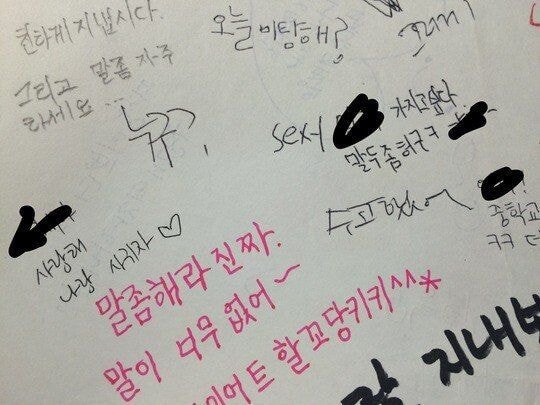 친하게 지냅시다.
그리고 말좀 자주
하세요...
오늘 미탕해?
꼬리
뉴규?
sex서 가지고싶다
말두좀하구ㅋ
수고했어
중학교
ㅋㅋ
사랑해
나랑 사귀자♡
말좀해라 진짜.
말이 너무 없어~
이어트 할꼬당키키^^*
지내